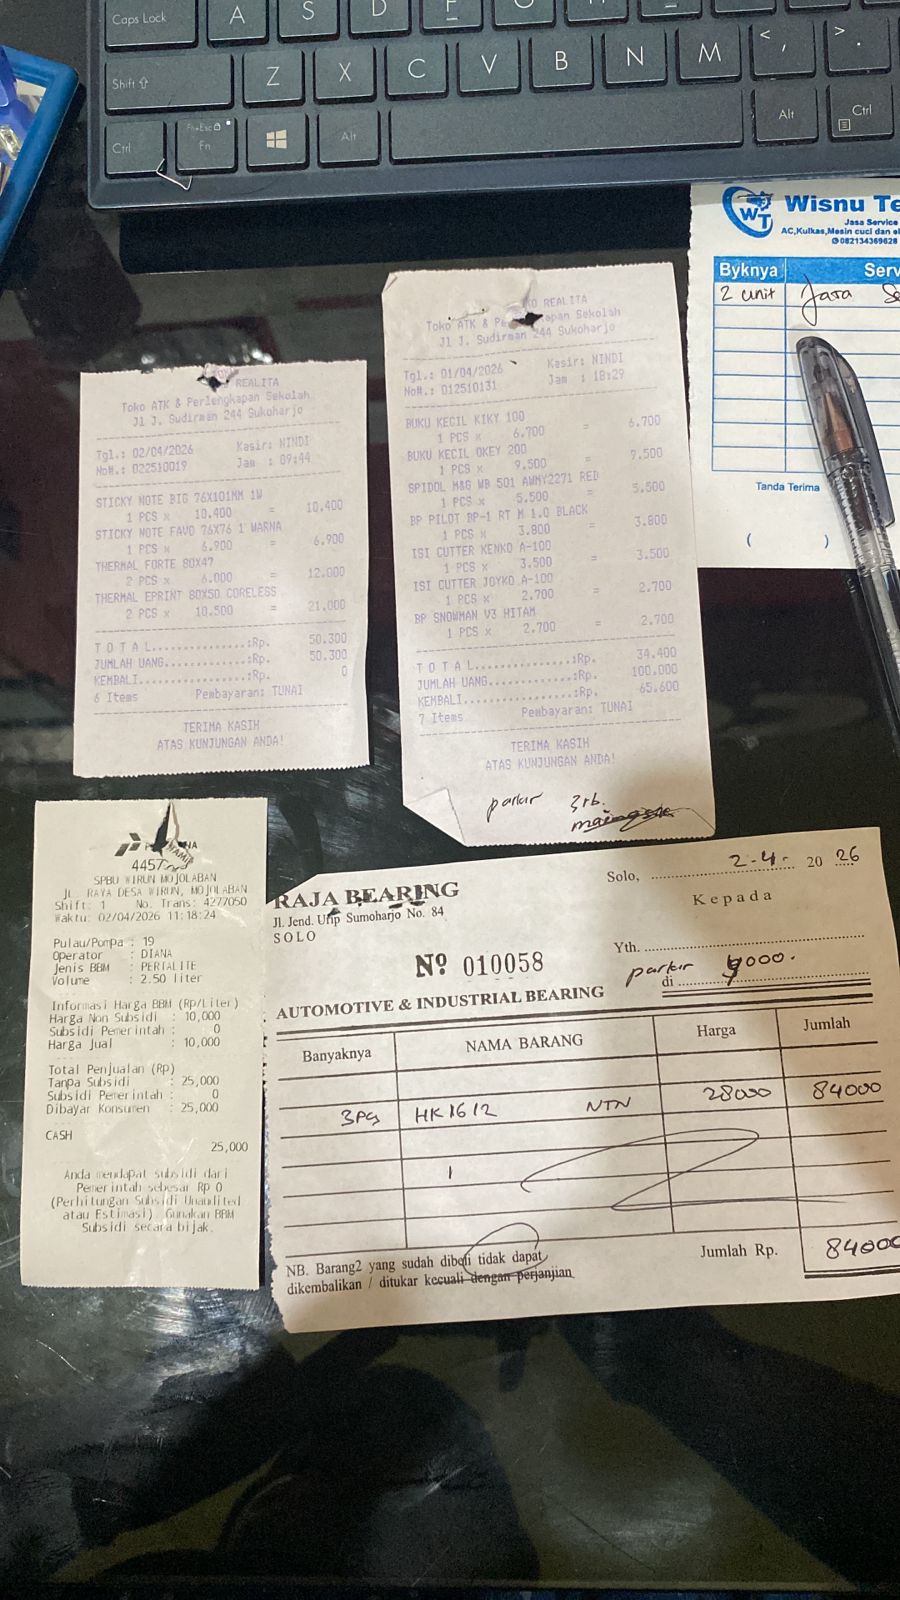 Caps Lock A S D
Shift Z X C V B N M < , > .
Ctrl Fn+Esc Fn Alt Alt Ctrl
WT
Wisnu Te
Jasa Service
AC,Kulkas,Mesin cuci dan el
082134369628
Byknya Serv
2 unit Jasa Se
Tanda Terima
( )
REALITA
Toko ATK & Perlengkapan Sekolah
Jl J. Sudirman 244 Sukoharjo
Tgl.: 02/04/2026 Kasir: NINDI
No#.: 022510019 Jam : 09:44
STICKY NOTE BIG 76X101MM 1W
1 PCS x 10.400 = 10.400
STICKY NOTE FAVO 76X76 1 WARNA
1 PCS x 6.900 = 6.900
THERMAL FORTE 80X47
2 PCS x 6.000 = 12.000
THERMAL EPRINT 80X50 CORELESS
2 PCS x 10.500 = 21.000
T O T A L..............:Rp. 50.300
JUMLAH UANG............:Rp. 50.300
KEMBALI................:Rp. 0
6 Items Pembayaran: TUNAI
TERIMA KASIH
ATAS KUNJUNGAN ANDA!
KO REALITA
Toko ATK & Pe kapan Sekolah
Jl J. Sudirman 244 Sukoharjo
Tgl.: 01/04/2026 Kasir: NINDI
No#.: 012510131 Jam : 18:29
BUKU KECIL KIKY 100
1 PCS x 6.700 = 6.700
BUKU KECIL OKEY 200
1 PCS x 9.500 = 9.500
SPIDOL M&G WB 501 AWMY2271 RED
1 PCS x 5.500 = 5.500
BP PILOT BP-1 RT M 1.0 BLACK
1 PCS x 3.800 = 3.800
ISI CUTTER KENKO A-100
1 PCS x 3.500 = 3.500
ISI CUTTER JOYKO A-100
1 PCS x 2.700 = 2.700
BP SNOWMAN V3 HITAM
1 PCS x 2.700 = 2.700
T O T A L..............:Rp. 34.400
JUMLAH UANG............:Rp. 100.000
KEMBALI................:Rp. 65.600
7 Items Pembayaran: TUNAI
TERIMA KASIH
ATAS KUNJUNGAN ANDA!
parkir 3rb.
4457
SPBU WIRUN MOJOLABAN
JL. RAYA DESA WIRUN, MOJOLABAN
Shift: 1 No. Trans: 4277050
Waktu: 02/04/2026 11:18:24
Pulau/Pompa : 19
Operator : DIANA
Jenis BBM : PERTALITE
Volume : 2.50 liter
Informasi Harga BBM (Rp/Liter)
Harga Non Subsidi : 10,000
Subsidi Pemerintah : 0
Harga Jual : 10,000
Total Penjualan (Rp)
Tanpa Subsidi : 25,000
Subsidi Pemerintah : 0
Dibayar Konsumen : 25,000
CASH
25,000
Anda mendapat subsidi dari
Pemerintah sebesar Rp 0
(Perhitungan Subsidi Unaudited
atau Estimasi). Gunakan BBM
Subsidi secara bijak.
RAJA BEARING
Jl. Jend. Urip Sumoharjo No. 84
SOLO
Solo, 2-4- 20 26
Kepada
Yth.
Nº 010058
parkir 000.
di
AUTOMOTIVE & INDUSTRIAL BEARING
Banyaknya NAMA BARANG Harga Jumlah
3pcs HK 1612 NTN 28000 84000
Jumlah Rp. 84000
NB. Barang2 yang sudah dibeli tidak dapat
dikembalikan / ditukar kecuali dengan perjanjian